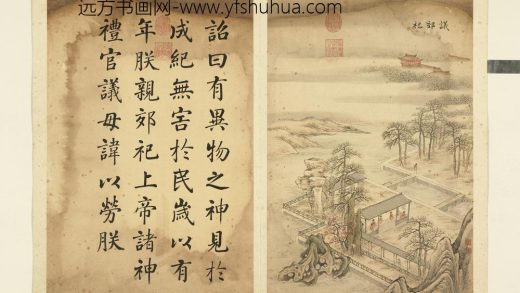 远方书画网-www.yfshuhua.com
詔曰有異物之神見於
成紀無害於民歲以有
年朕親郊祀上帝諸神
禮官議毋諱以勞朕
議郊祀